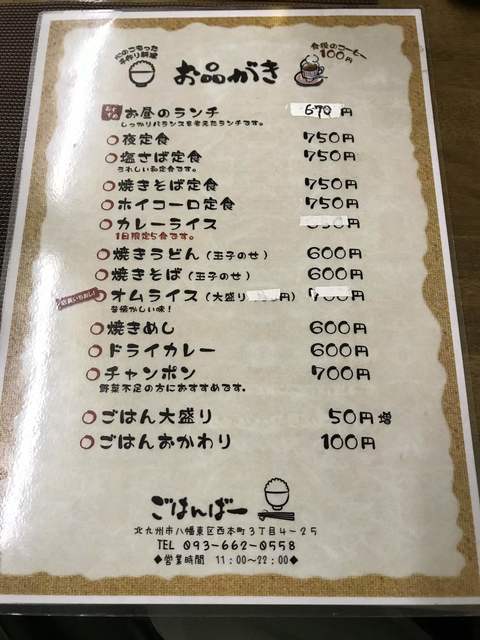 心のこもった
手作り料理
お品がき
食後のコーヒー
100円
おすすめ お昼のランチ 670円
しっかりバランスを考えたランチです。
夜定食 750円
塩さば定食 750円
うれしい和定食です。
焼きそば定食 750円
ホイコーロ定食 750円
カレーライス 円
1日限定5食です。
焼きうどん（玉子のせ） 600円
焼きそば（玉子のせ） 600円
店長いちおし! オムライス（大盛り 円） 700円
昔懐かしい味！
焼きめし 600円
ドライカレー 600円
チャンポン 700円
野菜不足の方におすすめです。
ごはん大盛り 50円増
ごはんおかわり 100円
ごはんばー
北九州市八幡東区西本町3丁目4－25
TEL 093-662-0558
◆営業時間 11：00～22：00◆